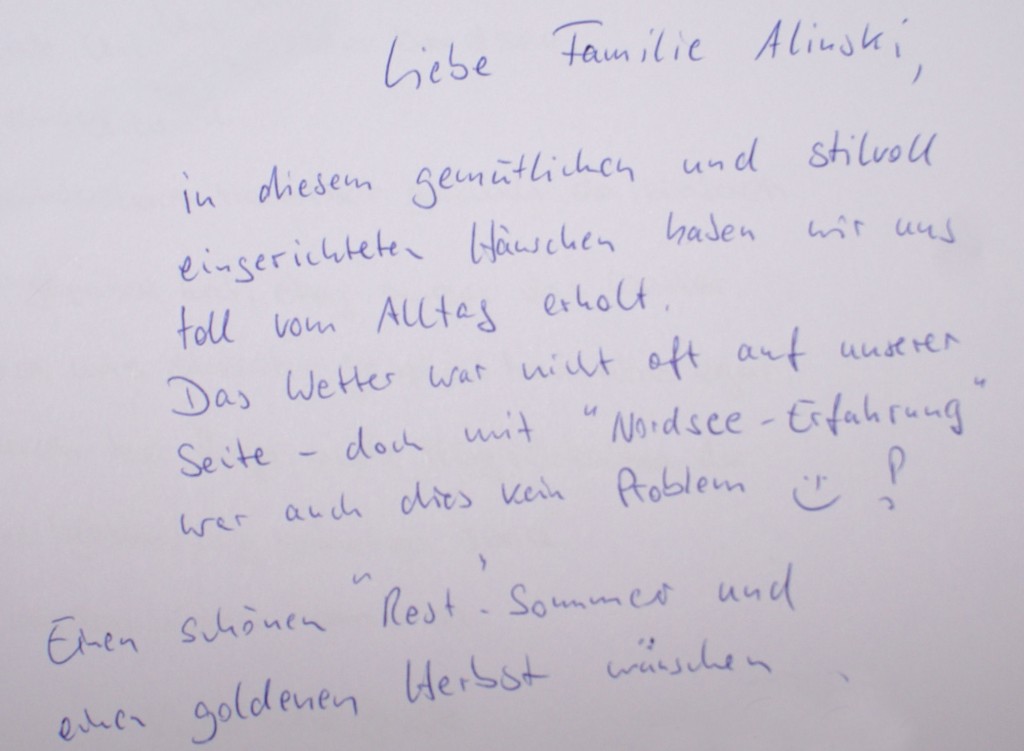 Liebe Familie Alinski,
in diesem gemütlichen und stilvoll
eingerichteten Häuschen haben wir uns
toll vom Alltag erholt.
Das Wetter war nicht oft auf unserer
Seite - doch mit "Nordsee-Erfahrung"
war auch dies kein Problem !
Einen schönen "Rest"-Sommer und
einen goldenen Herbst wünschen